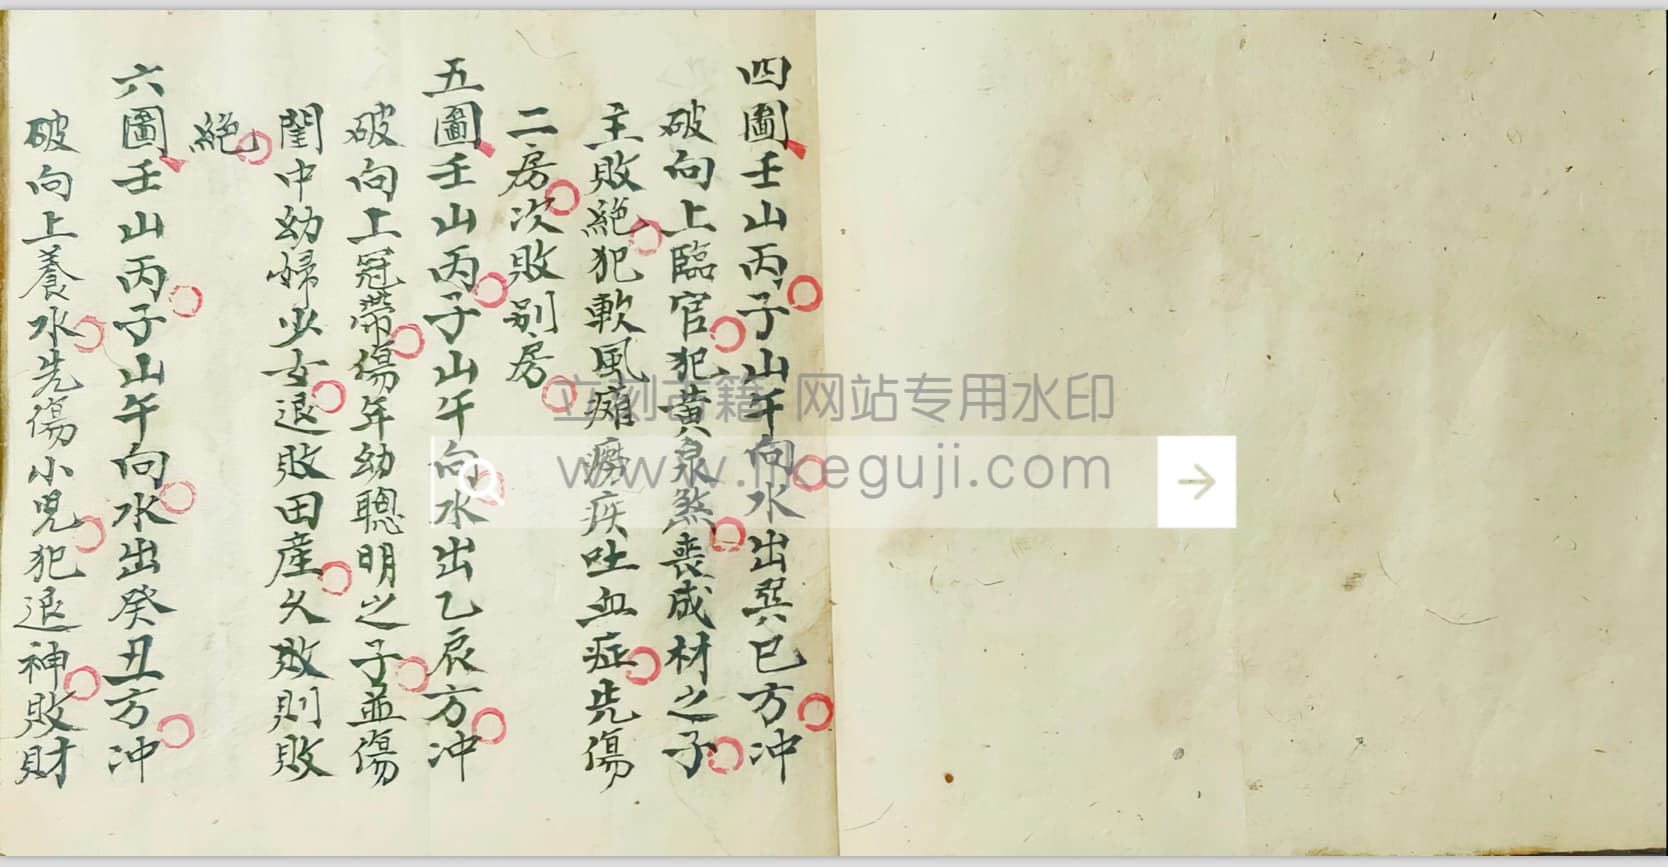 四圖壬山丙子山午向水出巽巳方冲
破向上臨官犯黄泉煞喪成材之子
主敗絕犯軟風癱癆疾吐血症先傷
二房次敗别房
五圖壬山丙子山午向水出乙辰方冲
破向上冠帶傷年幼聰明之子並傷
閨中幼婦少女退敗田産久敗則敗
絕
六圖壬山丙子山午向水出癸丑方冲
破向上養水先傷小兒犯退神敗財
立刻古籍 网站专用水印
www.likeguji.com